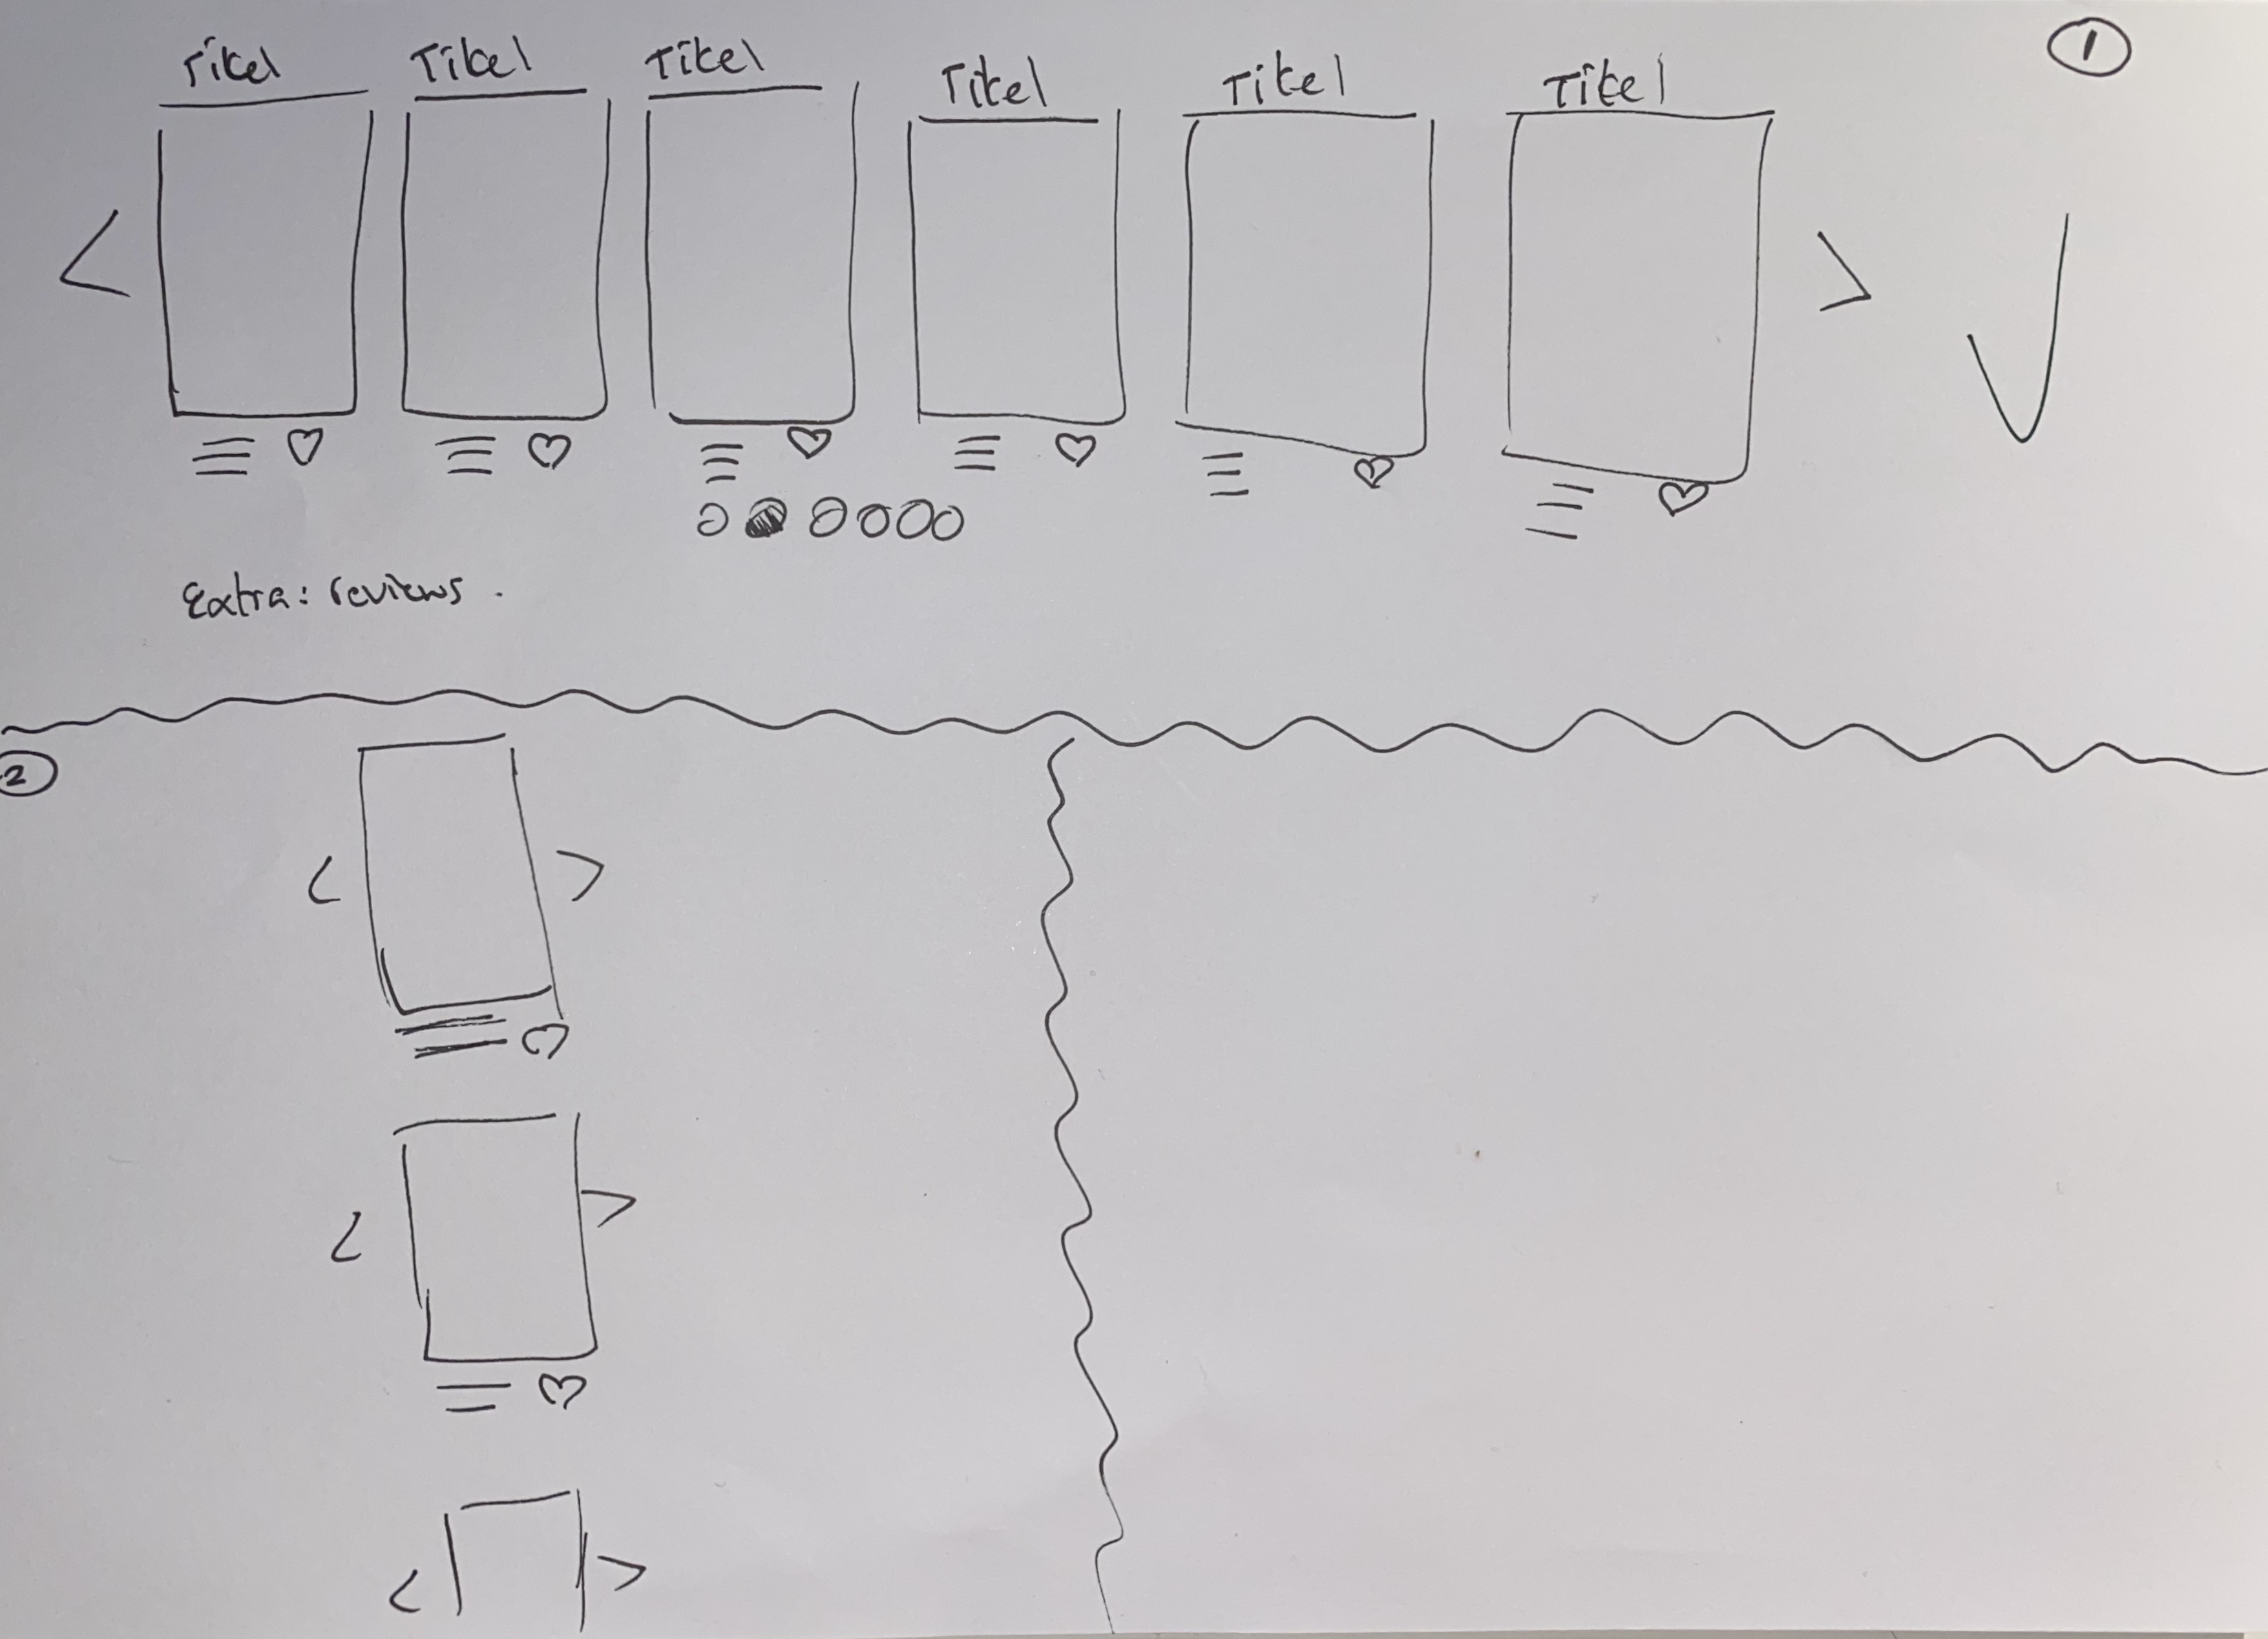 1
Titel Titel Titel Titel Titel Titel
Extra: reviews.
2